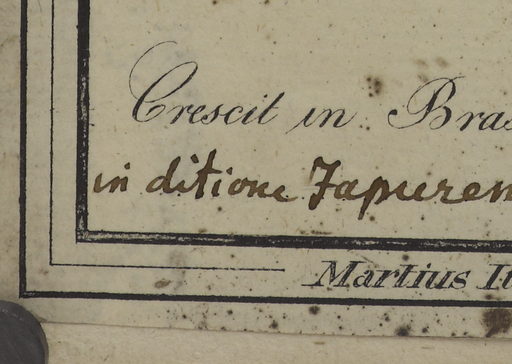 Crescit in Bras
in ditione Japuren
Martius It